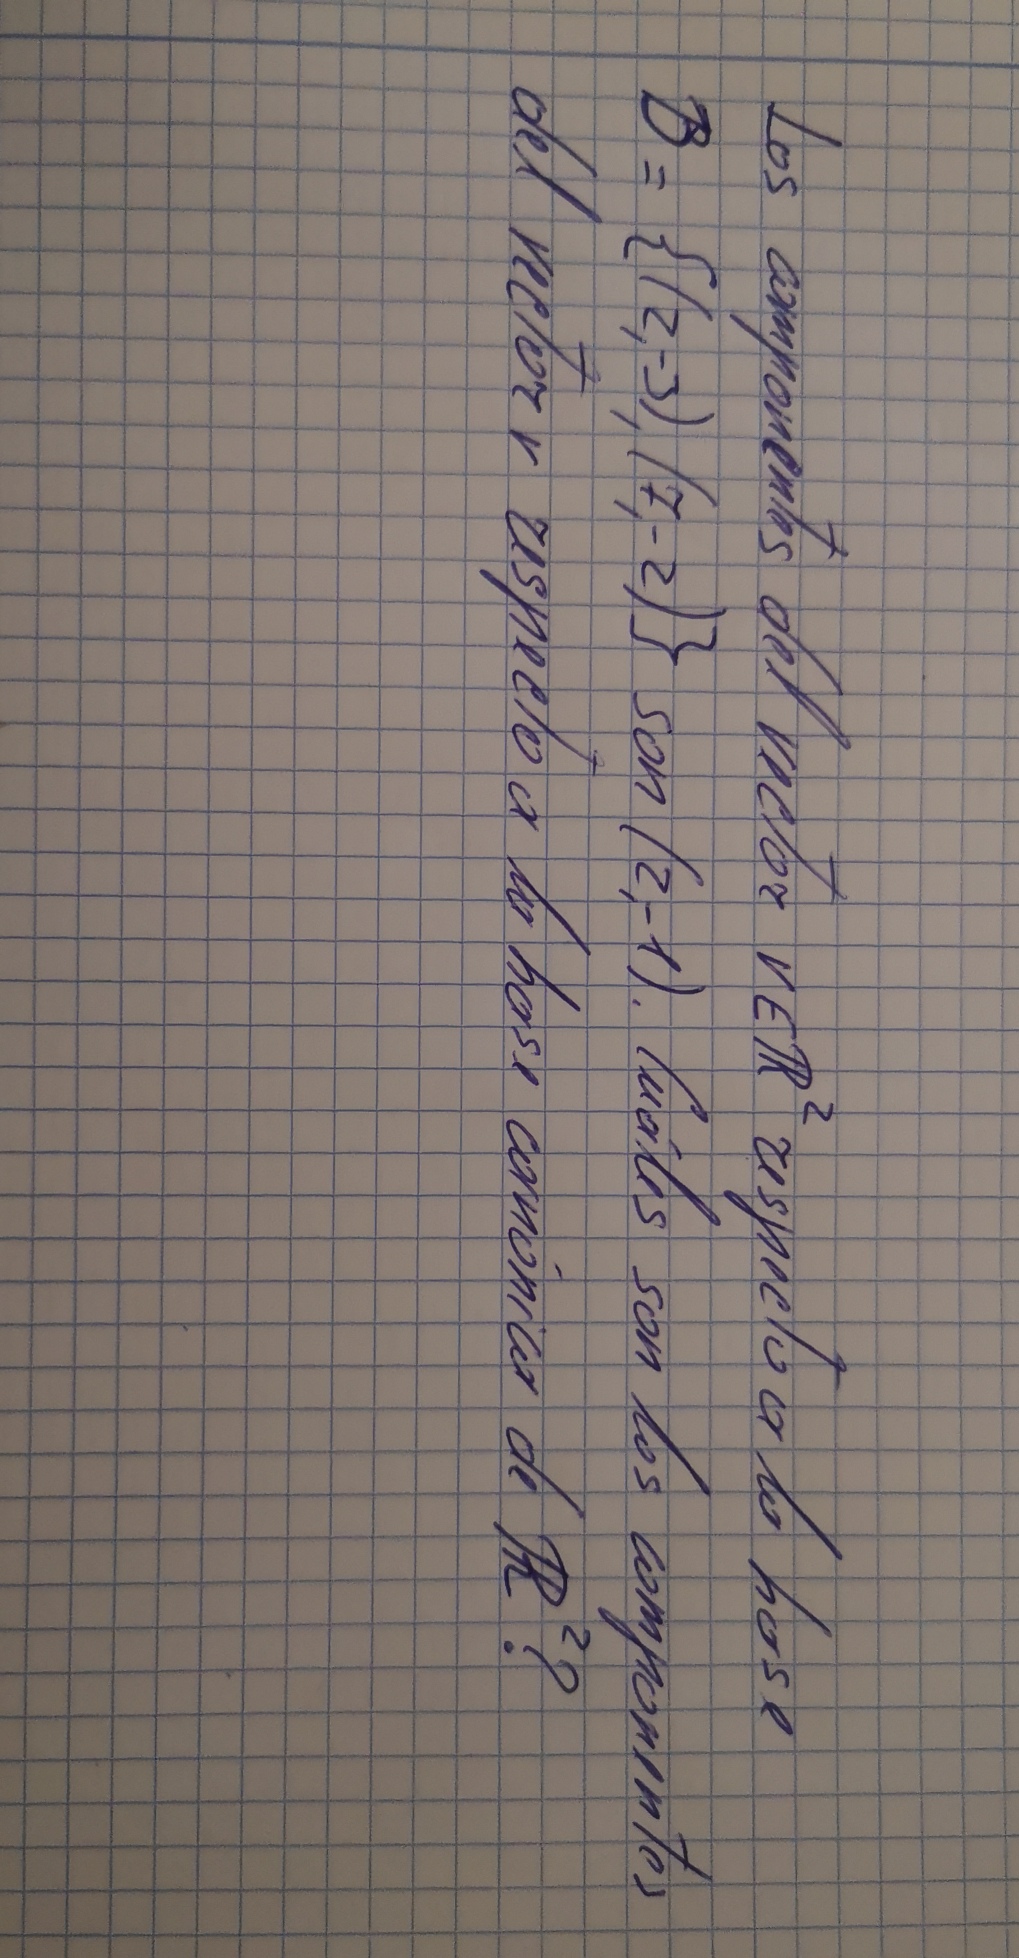 Los componentes del vector v∈ℝ² respecto a la base
B = {(2,-3), (7,-2)} son (2,-1). Cuáles son los componentes
del vector v respecto a la base canónica de ℝ²?